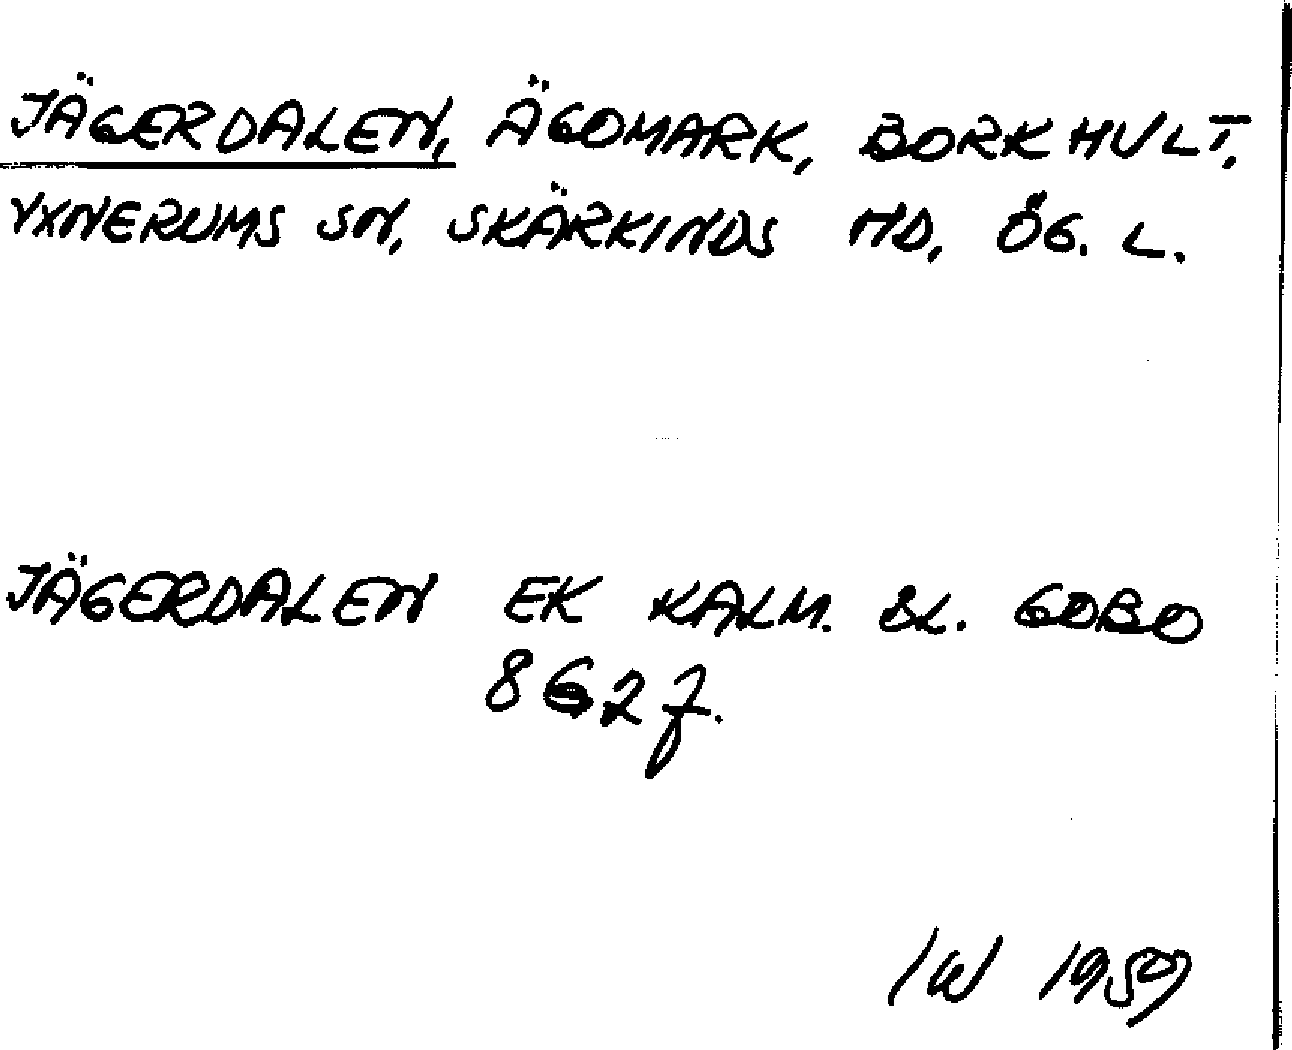 JÄGERDALEN, ÄGOMARK, BORKHULT,
YXNERUMS SN, SKÄRKINDS HD, ÖG. L.
JÄGERDALEN EK KALM. BL. GOBO
8G2f.
IW 1959